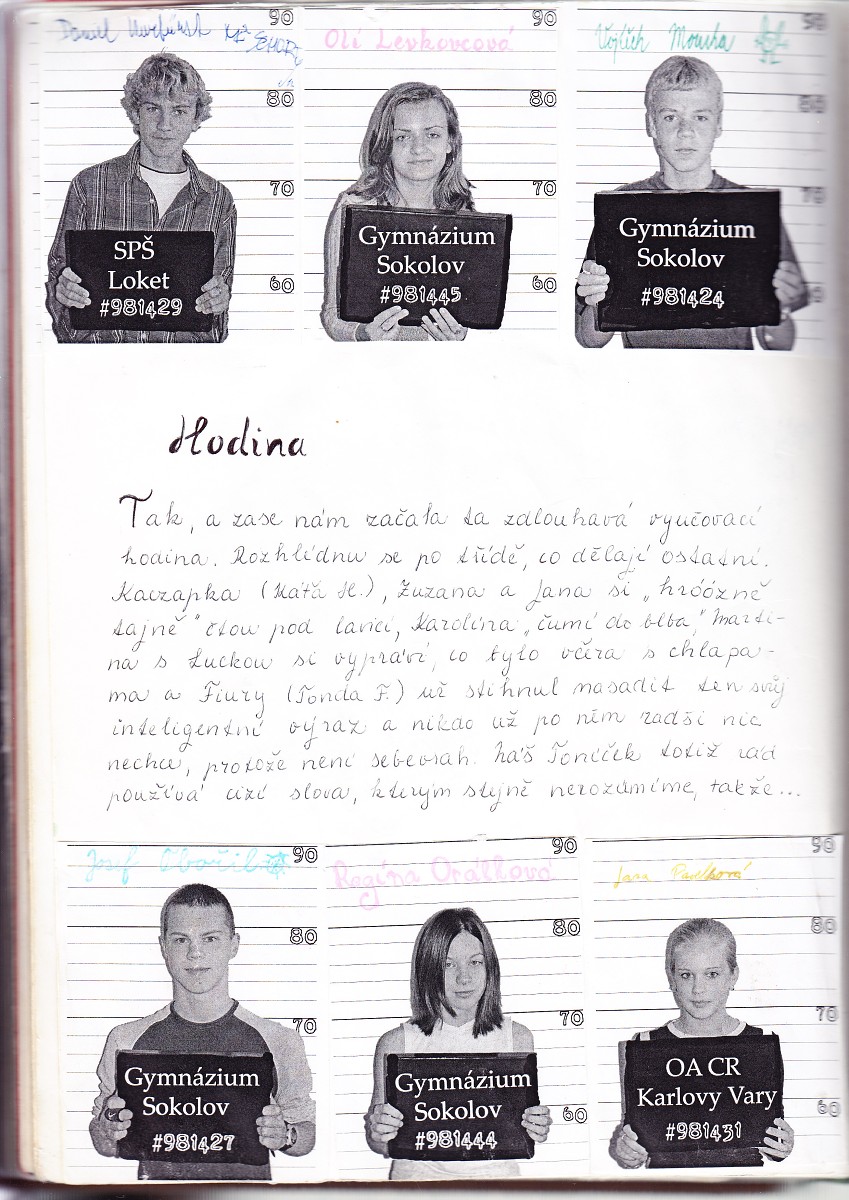 Daniel
90
80
70
60
SPŠ
Loket
#981429
Oli Levkovcová
90
80
70
60
Gymnázium
Sokolov
#981445
Vojtěch Mouska
90
80
70
Gymnázium
Sokolov
#981424
Hodina
Tak, a zase nám začala ta zdlouhavá vyučovací
hodina. Rozhlídnu se po třídě, co dělají ostatní.
Kaczapka (Káťa H.), Zuzana a Jana si „hróózně
tajně" čtou pod lavicí, Karolína „čumí do blba," Marti-
na s Luckou si vypráví, co bylo včera s chlapa-
ma a Fiury (Tonda F.) už stihnul nasadit ten svůj
inteligentní výraz a nikdo už po něm radši nic
nechce, protože není sebevrah. Náš Toníček totiž rád
používá cizí slova, kterým stejně nerozumíme, takže...
Josef Obořil
90
80
70
Gymnázium
Sokolov
#981427
Regina Orállová
90
80
70
60
Gymnázium
Sokolov
#981444
Jana Pavelková
90
80
70
60
OA CR
Karlovy Vary
#981431